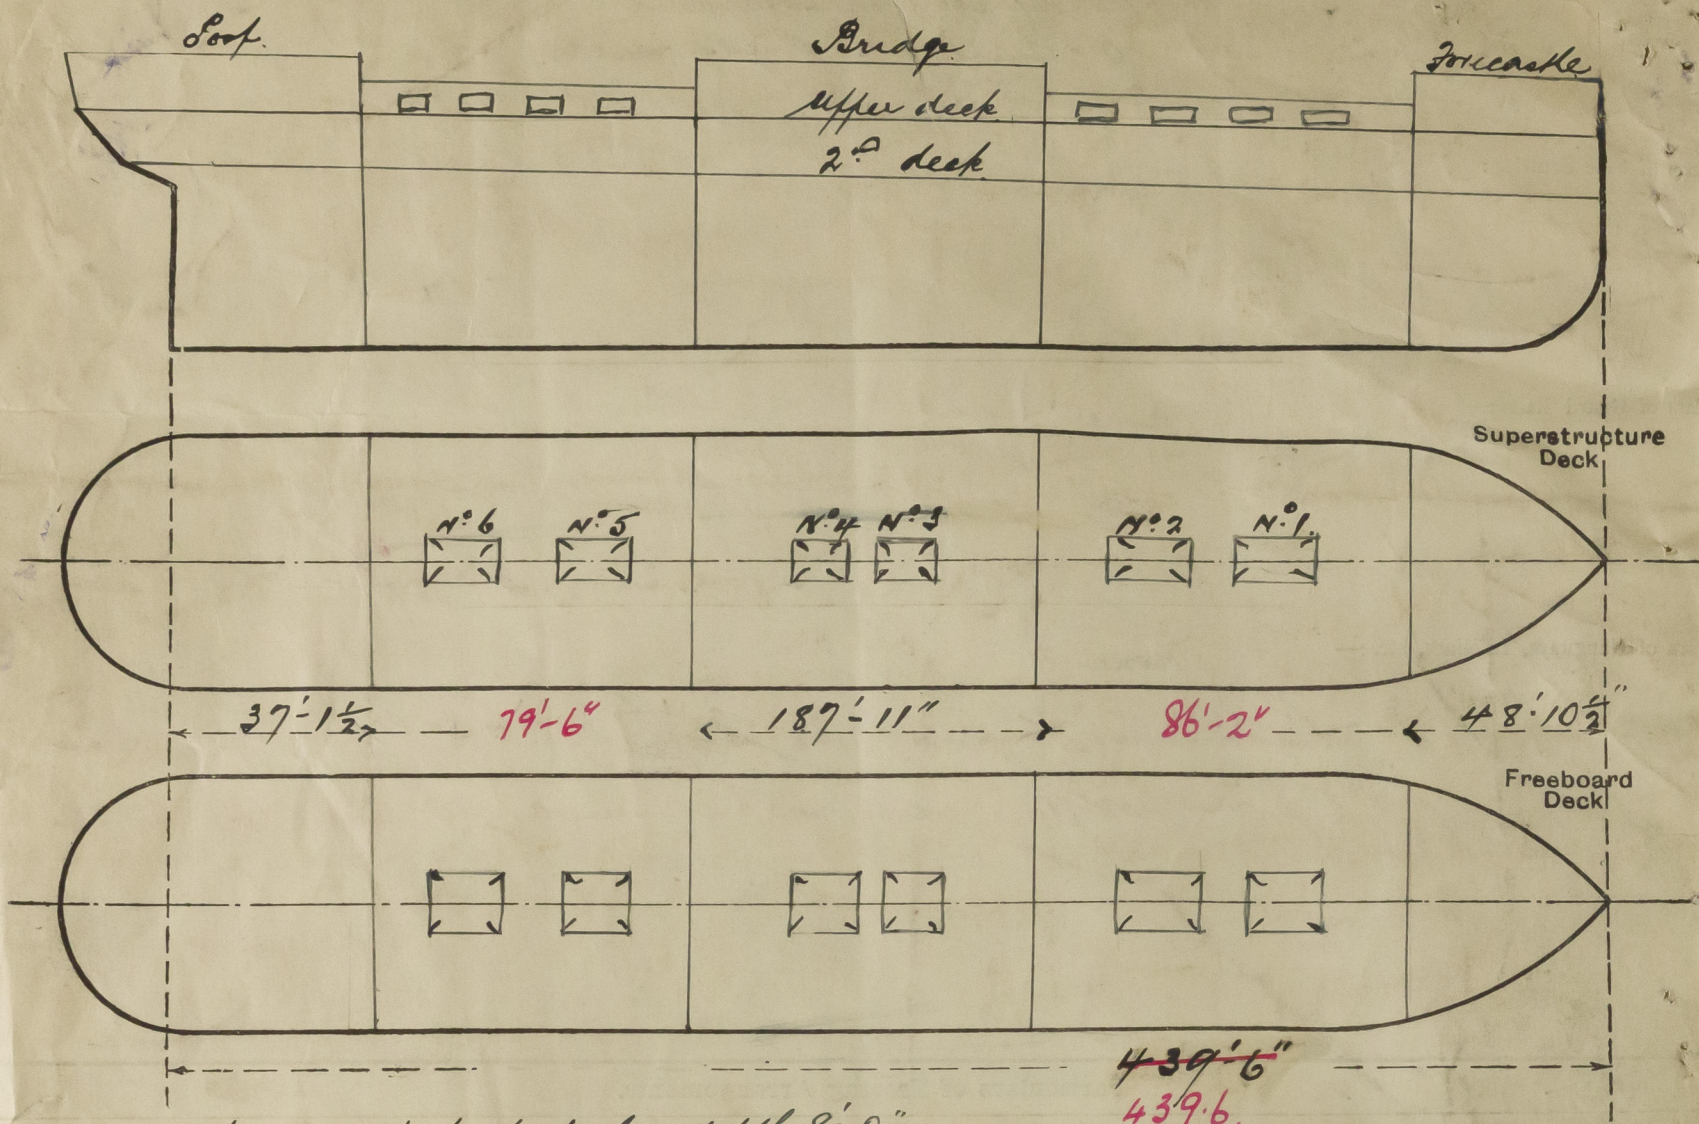 Poop.
Bridge
Forecastle
Upper deck
2nd deck
Superstructure
Deck
No 6 No 5 No 4 No 3 No 2 No 1.
37'-1 1/2 79'-6" 187'-11" 86'-2" 48'-10 1/2"
Freeboard
Deck
439'-6"
439.6